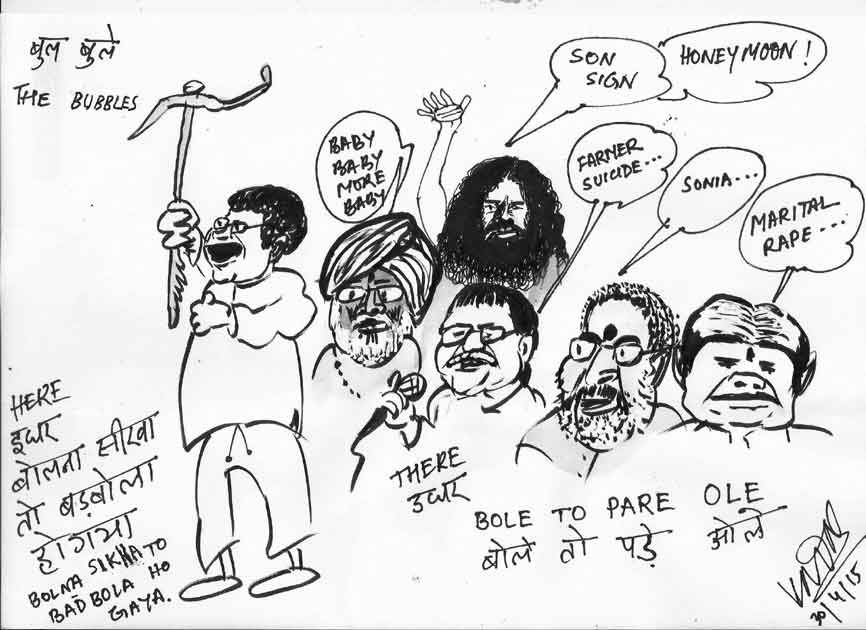 बुल बुले
THE BUBBLES
BABY
BABY
MORE
BABY
SON
SIGN
HONEYMOON!
FARMER
SUICIDE...
SONIA...
MARITAL
RAPE....
HERE
इधर
बोलना सीखा
तो बड़बोला
होगया
BOLNA SIKHA TO
BADBOLA HO
GAYA.
THERE
उधर
BOLE TO PARE OLE
बोले तो पड़े ओले
30/4/15